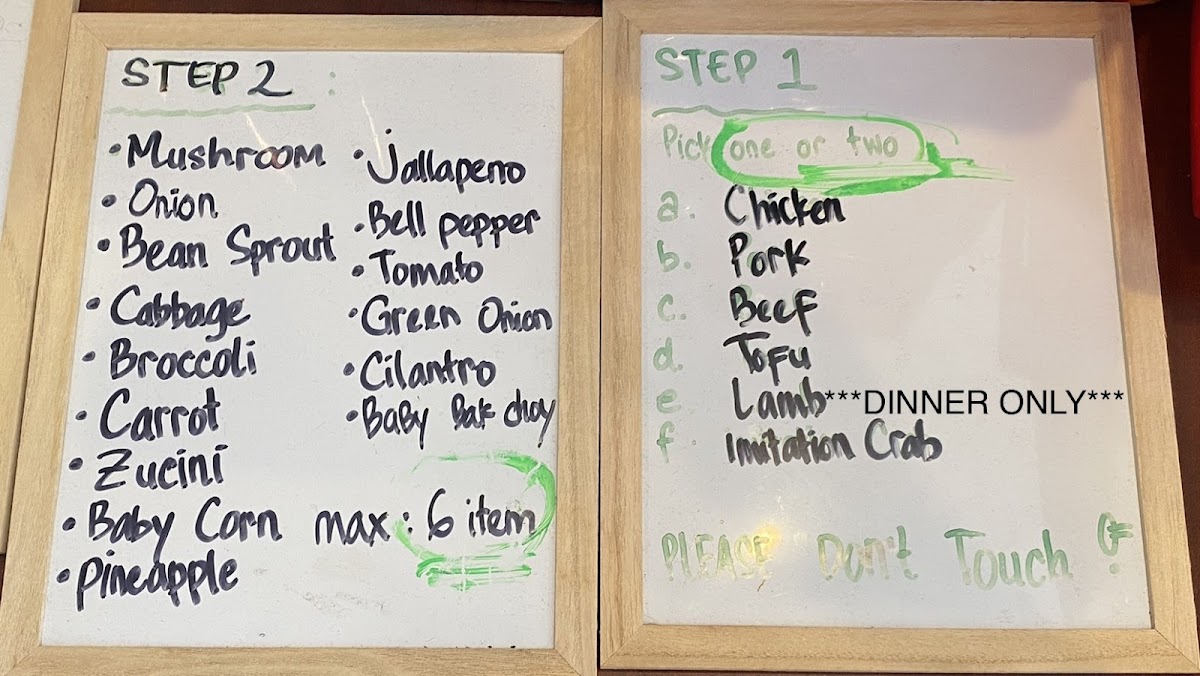 STEP 2
• Mushroom
• Onion
• Bean Sprout
• Cabbage
• Broccoli
• Carrot
• Zucini
• Baby Corn
• Pineapple
• Jallapeno
• Bell pepper
• Tomato
• Green Onion
• Cilantro
• Baby Bak choy
max : 6 item
STEP 1
Pick one or two
a. Chicken
b. Pork
c. Beef
d. Tofu
e. Lamb***DINNER ONLY***
f. Imitation Crab
PLEASE Don't Touch